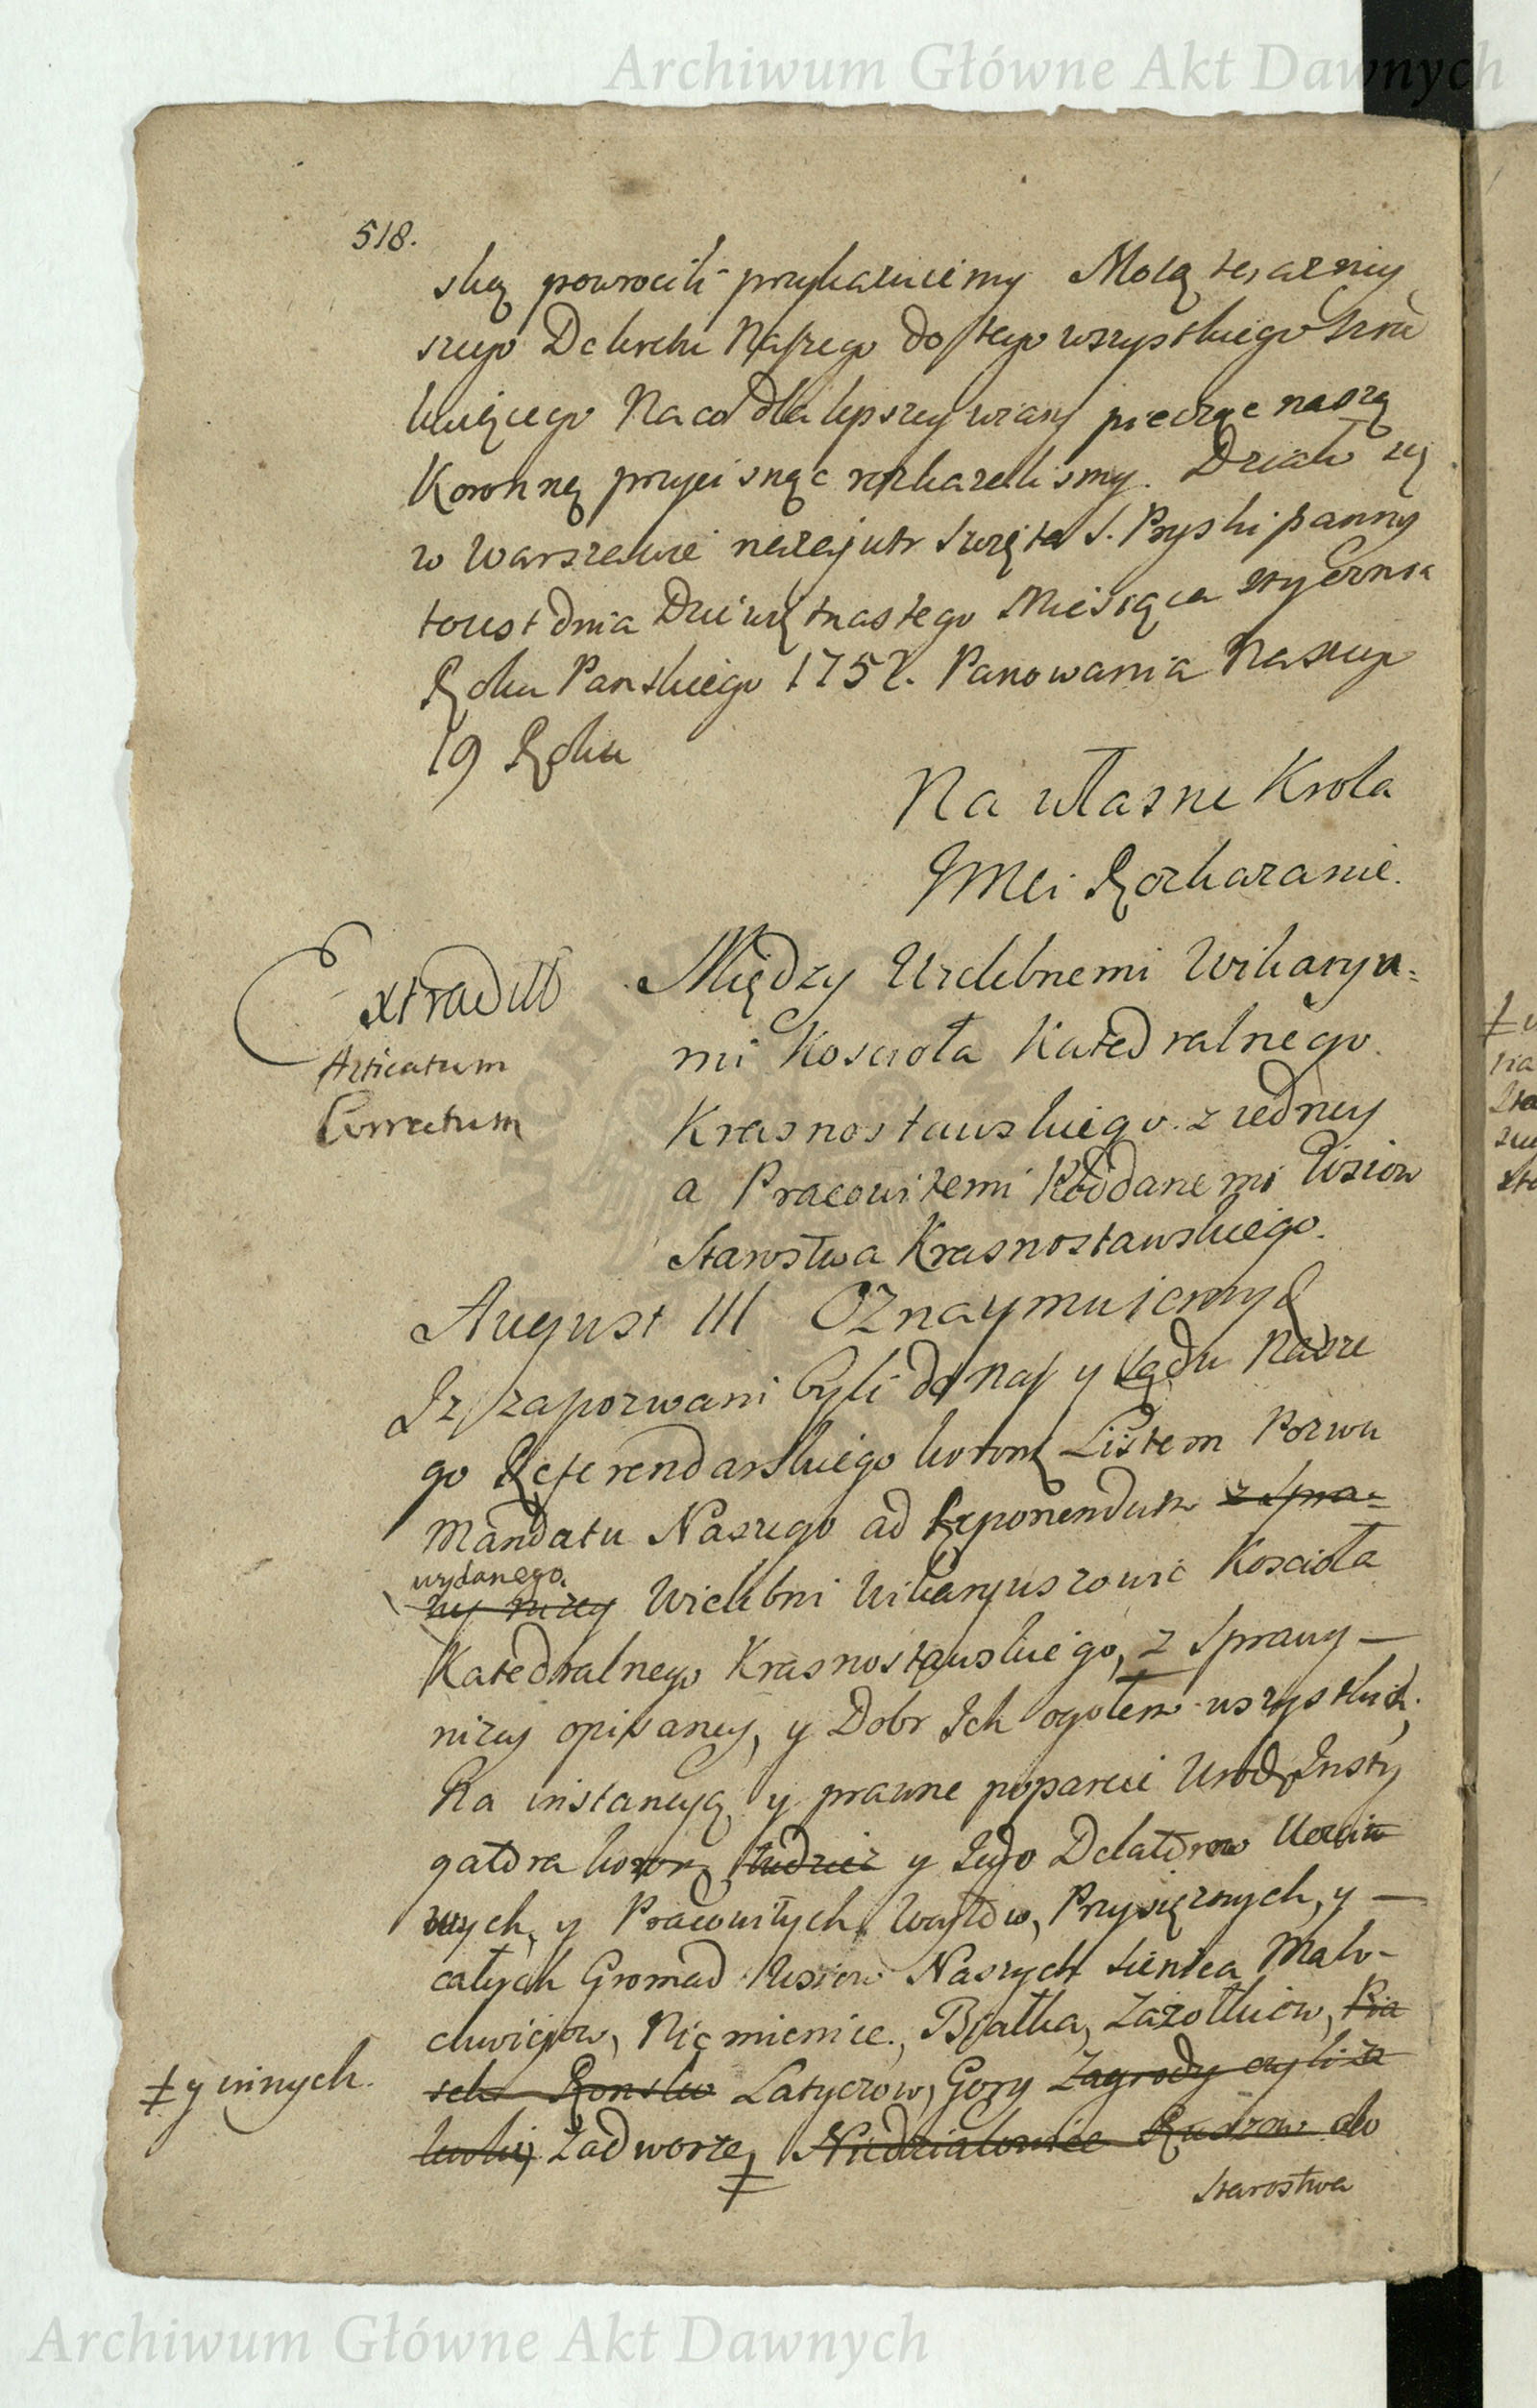 Archiwum Główne Akt Dawnych
518.
powrocili przykazuiemy Mocą teraznieÿ
szego Dekretu Naszego do tego wszystkiego
Na co dla lepszey wiary pieczęc naszą
Koronną przycisnąc rozkazalismy. Działo się
w Warszawie nazajutr Swięta S. Pryski panny
to iest dnia Dziewiętnastego Miesiąca stycznia
Roku Panskiego 1752. Panowania Naszego
19 Roku
Na własne Krola
JMci Rozkazanie.
Extraditū
Articatum
Correctum
Między Wielebnemi Wikaryu=
mi Koscioła Katedralnego
Krasnostawskiego z iedney
a Pracowitemi Poddanemi Wsiow
Starostwa Krasnostawskiego.
August III Oznaymuiemy
Iz zapozwani byli do nas y Sądu Nasze
go Referendarskiego koronn Listem Pozwu
Mandatu Naszego ad Reponendum z Spra=
wydanego
wy nizey Wielebni Wikaryuszowie Koscioła
Katedralnego Krasnostawskiego, z Sprawy —
nizey opisaney, y Dobr Ich ogołem wszystkich,
Na instancyą y prawne poparcie Urodz Insty
gatora koron, tudziez y Iego Delatorow Uczciw
wych, y Pracowitych Woytow, Przysięznych, y —
całych Gromad Wsiow Naszych Sienica, Mało-
Niemienice, Białka, Zazołkiew, Pia
Latyczow, Gory Zagrody czyli
Zadworze, Niedziałowice Rudzow do
‡ y innych.
Starostwa
Archiwum Główne Akt Dawnych